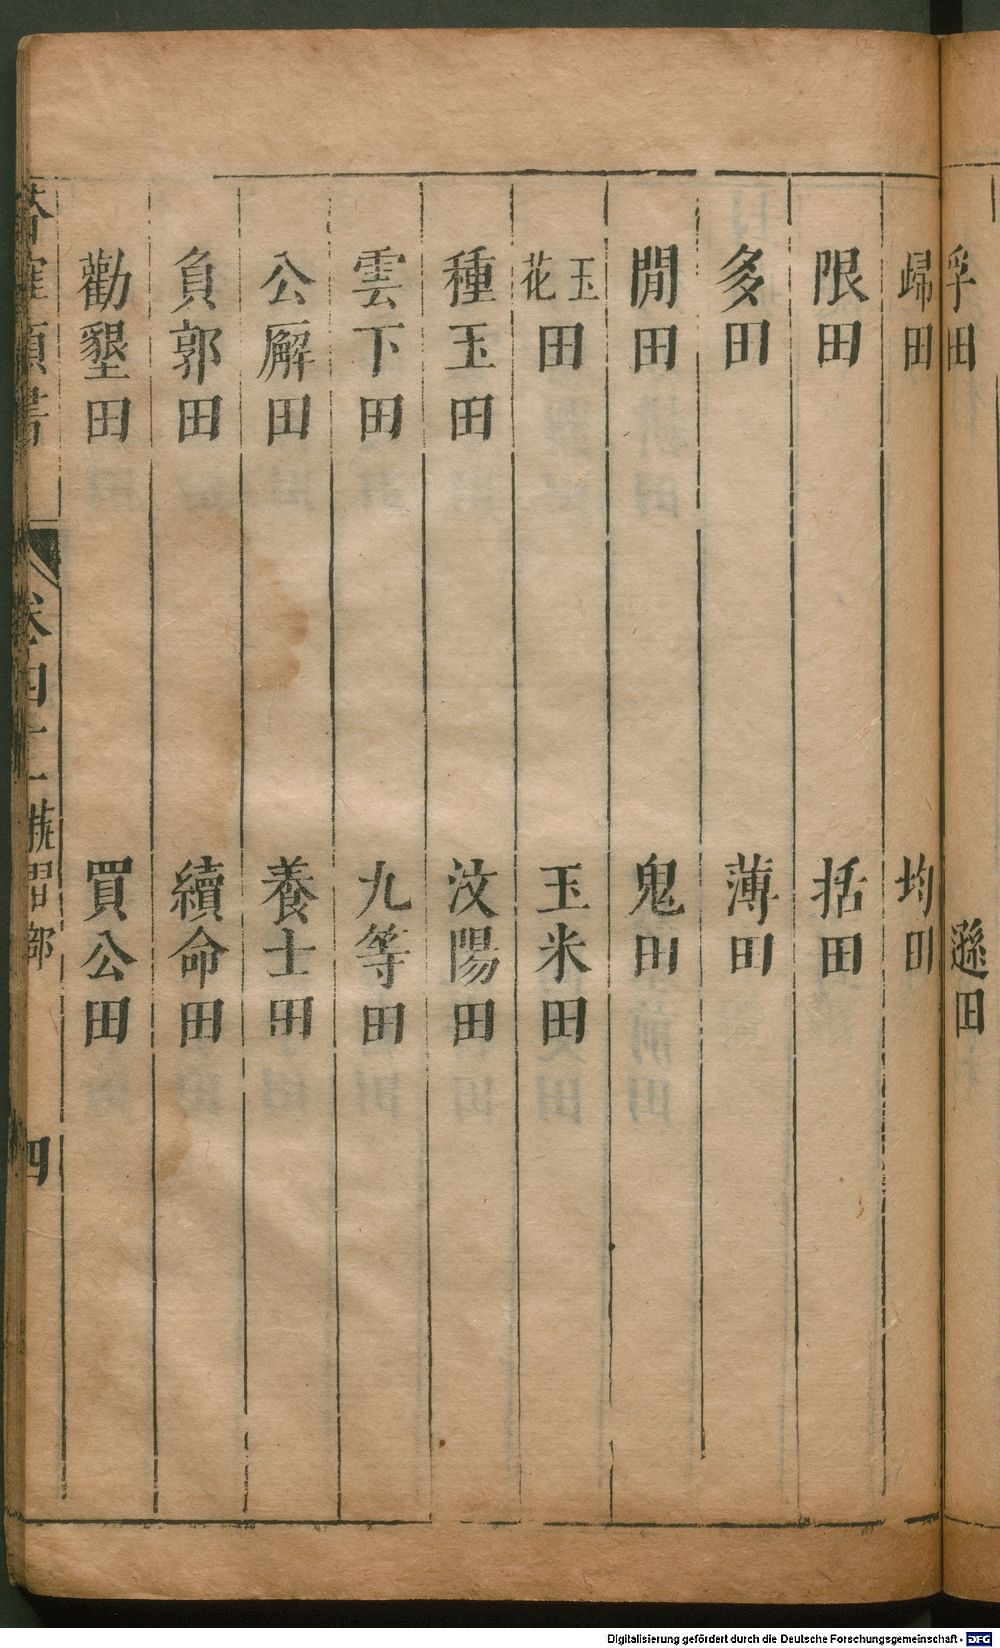 孚田 遜田
歸田 均田
限田 括田
多田 薄田
閒田 鬼田
玉花田 玉米田
種玉田 汶陽田
雲下田 九等田
公廨田 養士田
負郭田 續命田
勸墾田 買公田
卷四十二 部 四
Digitalisierung gefördert durch die Deutsche Forschungsgemeinschaft - DFG